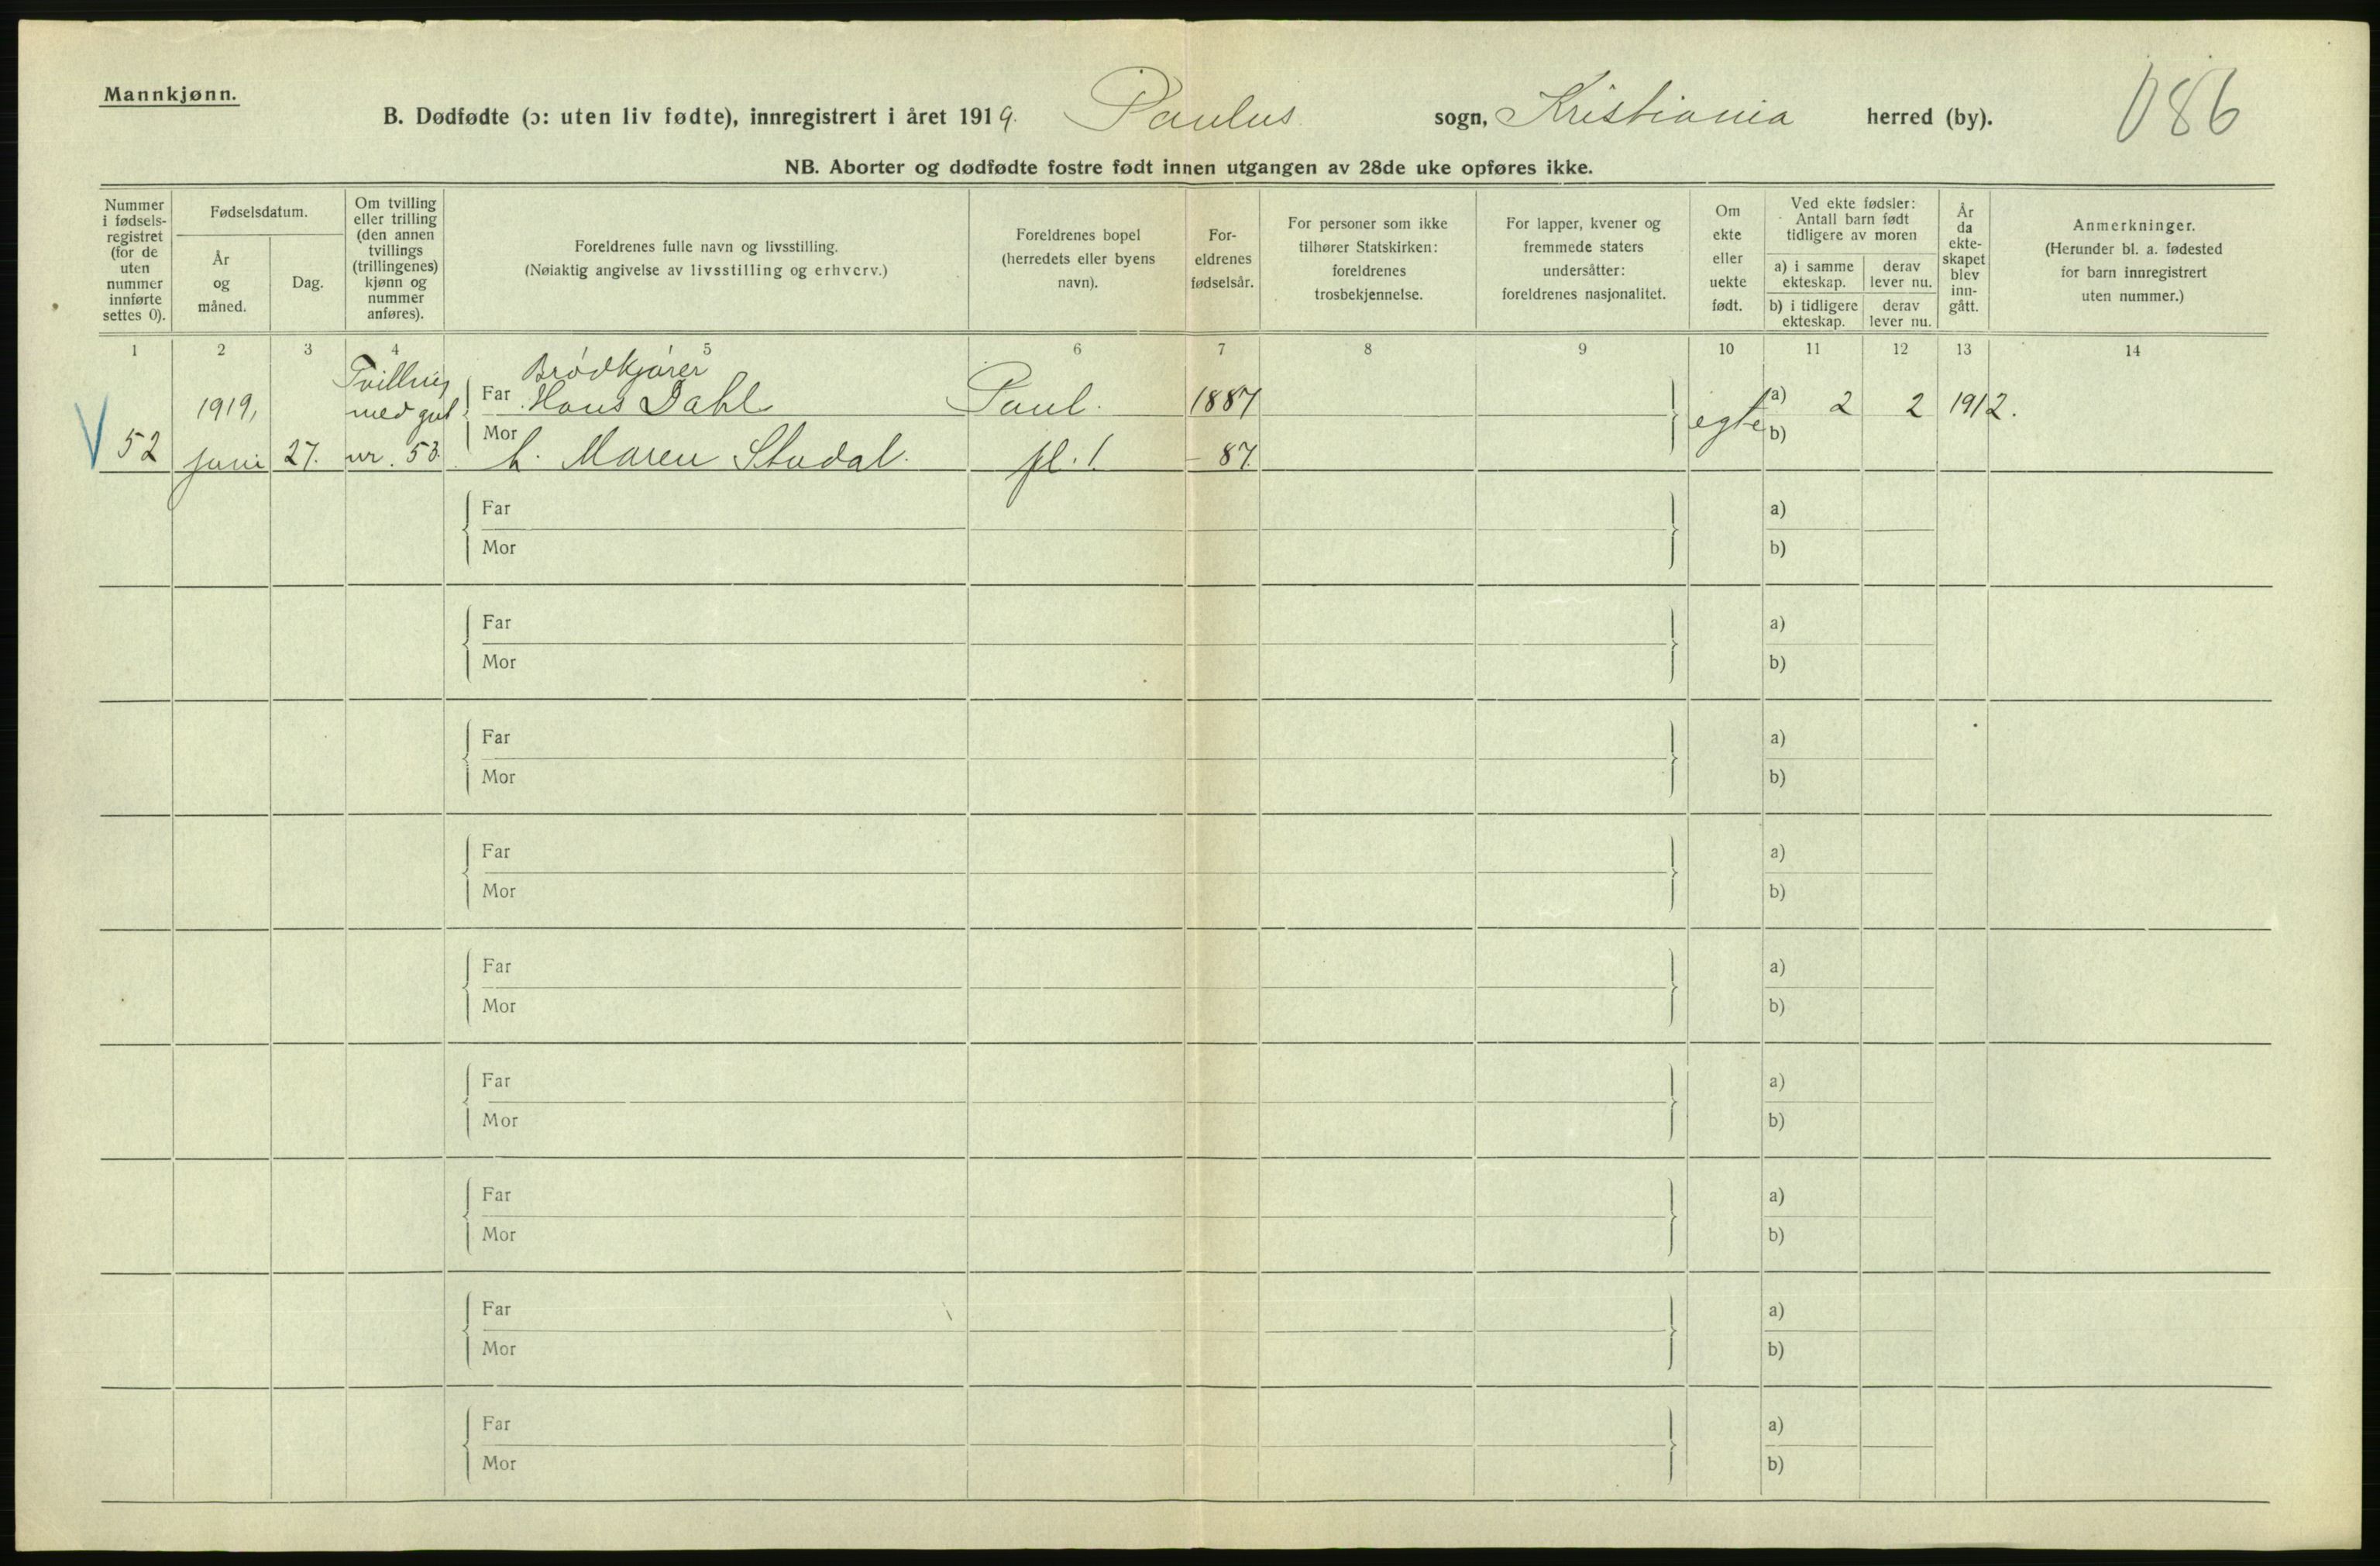 Mannkjønn.
B. Dødfødte (ɔ: uten liv fødte), innregistrert i året 1919. Paulus sogn, Kristiania herred (by).
086
NB. Aborter og dødfødte fostre født innen utgangen av 28de uke opføres ikke.
Nummer
i fødsels-
registret
(for de
uten
nummer
innførte
settes 0).
Fødselsdatum.
År
og
måned.
Dag.
Om tvilling
eller trilling
(den annen
tvillings
(trillingenes)
kjønn og
nummer
anføres).
Foreldrenes fulle navn og livsstilling.
(Nøiaktig angivelse av livsstilling og erhverv.)
Foreldrenes bopel
(herredets eller byens
navn).
For-
eldrenes
fødselsår.
For personer som ikke
tilhører Statskirken:
foreldrenes
trosbekjennelse.
For lapper, kvener og
fremmede staters
undersåtter:
foreldrenes nasjonalitet.
Om
ekte
eller
uekte
født.
Ved ekte fødsler:
Antall barn født
tidligere av moren
a) i samme
ekteskap.
derav
lever nu.
b) i tidligere
ekteskap.
derav
lever nu.
År
da
ekte-
skapet
blev
inn-
gått.
Anmerkninger.
(Herunder bl. a. fødested
for barn innregistrert
uten nummer.)
1 2 3 4 5 6 7 8 9 10 11 12 13 14
Tvilling Brødkjører
1919, med gut Far Hans Dahl Paul. 1887 egte a) 2 2 1912.
Mor b)
52 juni 27. nr. 53. h. Maren Studal. pl. 1. - 87.
Far a)
Mor b)
Far a)
Mor b)
Far a)
Mor b)
Far a)
Mor b)
Far a)
Mor b)
Far a)
Mor b)
Far a)
Mor b)
Far a)
Mor b)
Far a)
Mor b)